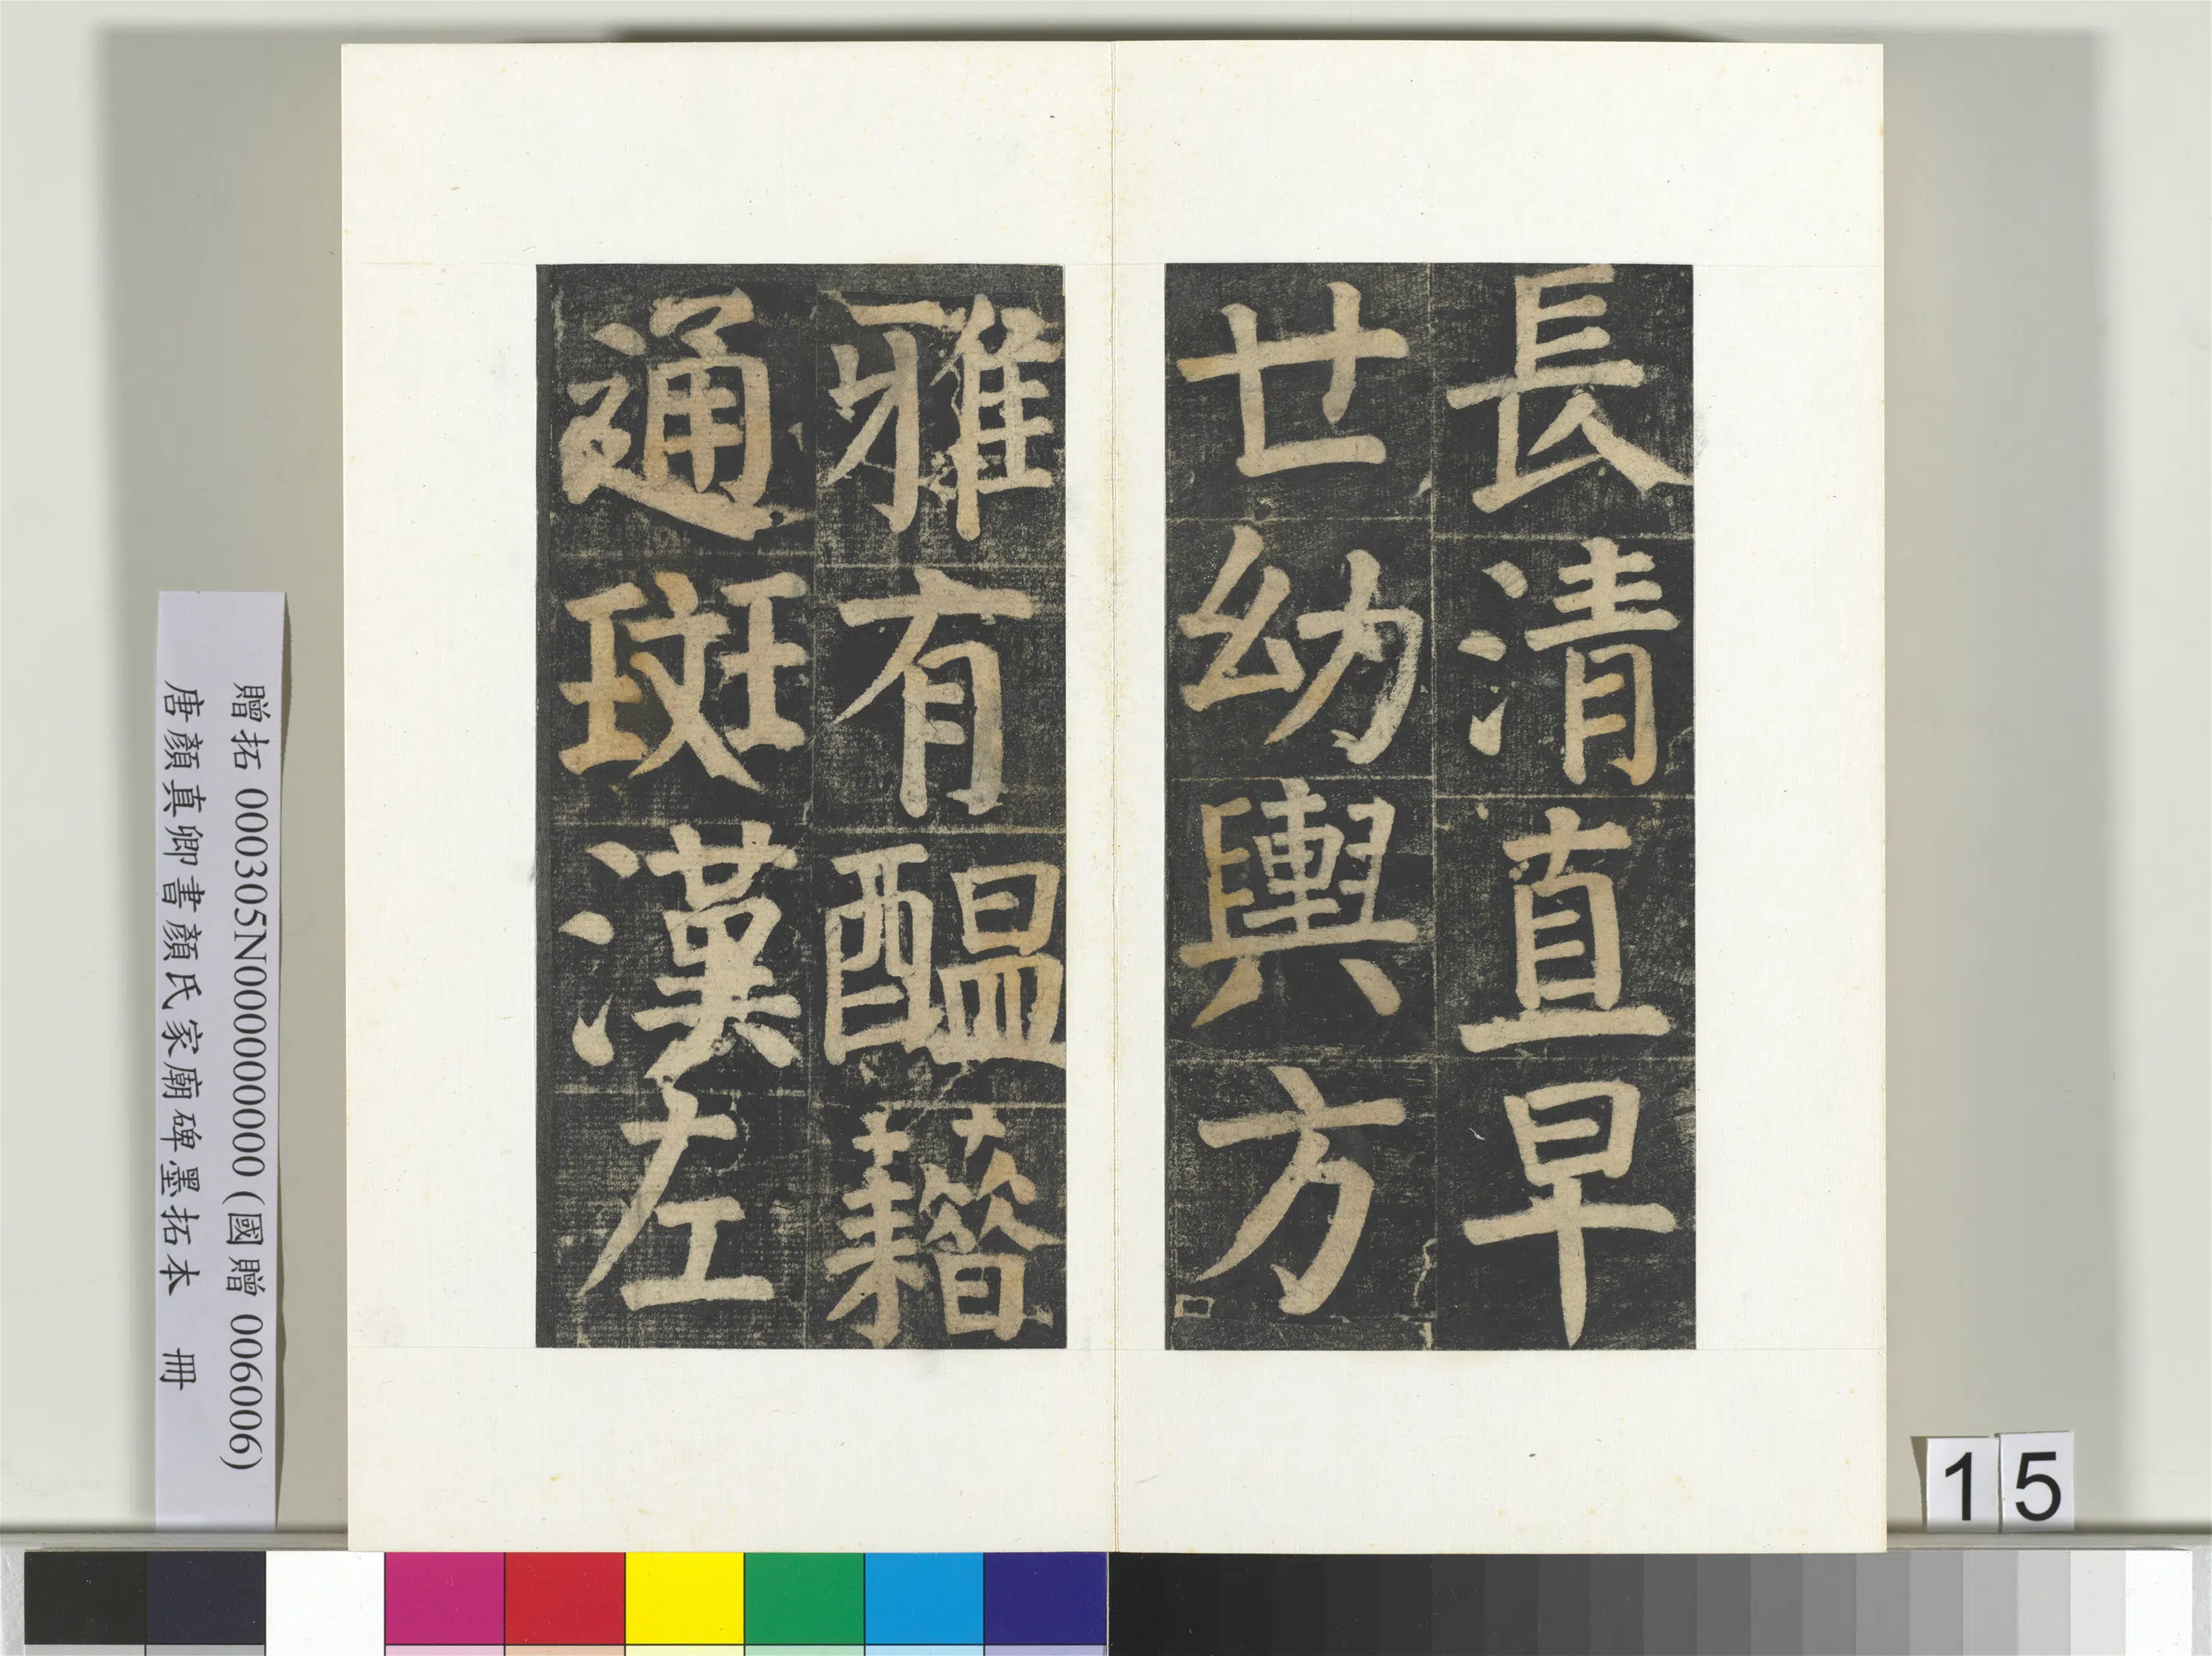 長清直早
世幼輿方
雅有醖藉
通班漢左
贈拓 000305N000000000 (國贈 006006)
唐顏真卿書顏氏家廟碑墨拓本 冊
15